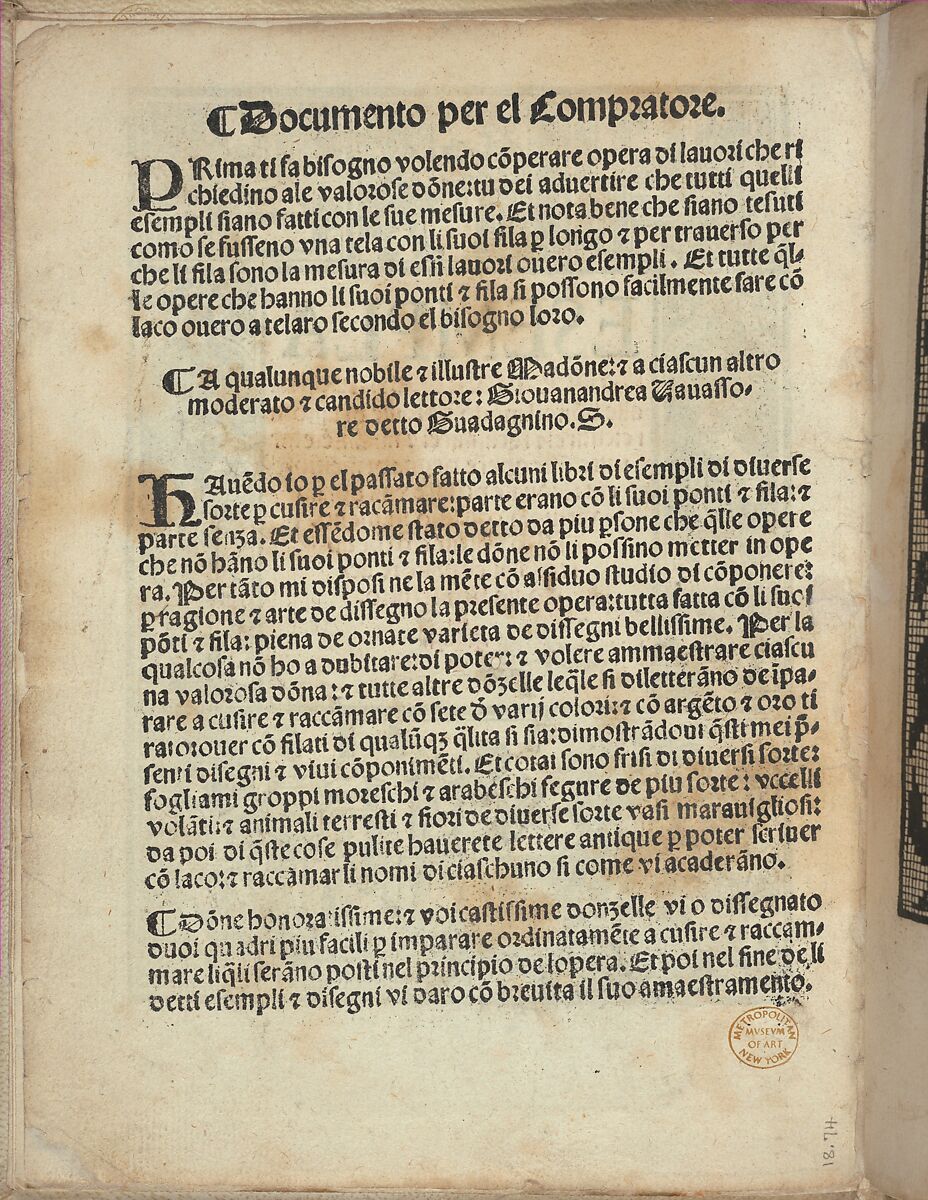 ¶Documento per el Compratore.
PRima ti fa bisogno volendo cōperare opera di lauori che ri
chiedino ale valorose dōne:tu dei aduertire che tutti quelli
esempli siano fatti con le sue mesure. Et nota bene che siano tesuti
como se fusseno vna tela con li suoi fila ꝑ longo ⁊ per trauerso per
che li fila sono la mesura di essi lauori ouero esempli. Et tutte q̄l-
le opere che hanno li suoi ponti ⁊ fila si possono facilmente fare cō
laco ouero a telaro secondo el bisogno loro.
¶A qualunque nobile ⁊ illustre Madōne:⁊ a ciascun altro
moderato ⁊ candido lettore: Giouanandrea Vauasso-
re detto Guadagnino. S.
HAuēdo io ꝑ el passato fatto alcuni libri di esempli di diuerse
sorte ꝑ cusire ⁊ racāmare:parte erano cō li suoi ponti ⁊ fila:⁊
parte senza. Et essēdome stato detto da piu ꝑsone che q̄lle opere
che nō hāno li suoi ponti ⁊ fila:le dōne nō li possino metter in ope
ra. Per tāto mi disposi ne la mēte cō assiduo studio di cōponere:
ꝑ ragione ⁊ arte de dissegno la presente opera:tutta fatta cō li suoi
pōti ⁊ fila: piena de ornate varieta de dissegni bellissime. Per la
qualcosa nō ho a dubitare:di poter: ⁊ volere ammaestrare ciascu
na valorosa dōna:⁊ tutte altre dōzelle leq̄le si diletterāno de īpa-
rare a cusire ⁊ raccāmare cō sete d̄ varij colori:⁊ cō argēto ⁊ oro ti
rato:ouer cō filati di qualūqꝫ q̄lita si sia:dimostrādoui q̄sti mei p̄-
senti disegni ⁊ viui cōponimēti. Et cotai sono frisi di diuersi sorte:
fogliami groppi moreschi ⁊ arabeschi fegure de piu sorte: vccelli
volāti:⁊ animali terresti ⁊ fiori de diuerse sorte vasi marauigliosi:
da poi di q̄ste cose pulite hauerete lettere antique ꝑ poter scriuer
cō laco:⁊ raccāmar li nomi di ciaschuno si come vi acaderāno.
¶Dōne honoratissime:⁊ voi castissime donzelle vi o dissegnato
duoi quadri piu facili ꝑ imparare ordinatamēte a cusire ⁊ raccam-
mare liq̄li serāno posti nel principio de lopera. Et poi nel fine de li
detti esempli ⁊ disegni vi daro cō breuita il suo amaestramento.
METROPOLITAN
MVSEVM
OF ART
NEW YORK
18.74